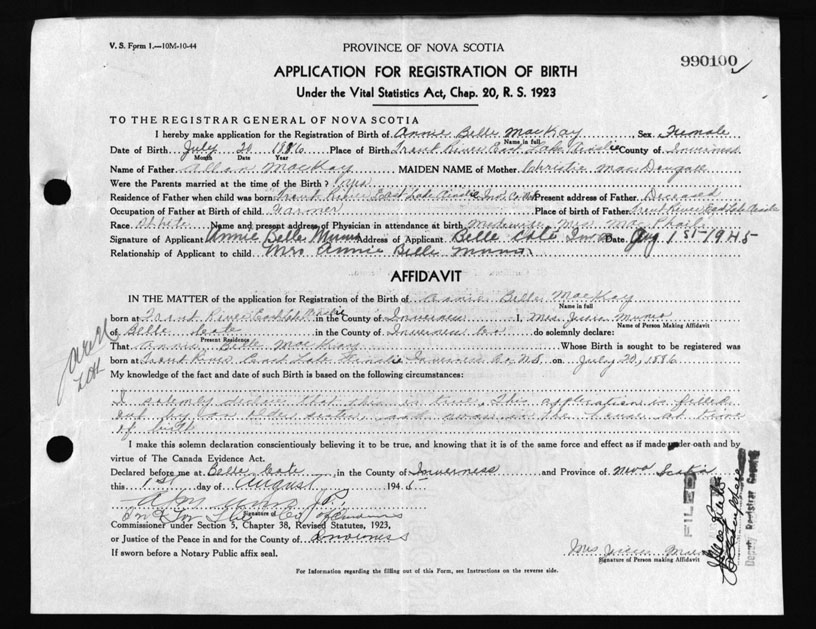 V. S. Form 1.—10M-10-44
PROVINCE OF NOVA SCOTIA
990100
APPLICATION FOR REGISTRATION OF BIRTH
Under the Vital Statistics Act, Chap. 20, R. S. 1923
TO THE REGISTRAR GENERAL OF NOVA SCOTIA
I hereby make application for the Registration of Birth of Annie Belle MacKay, Sex Female
Name in full
Date of Birth July 20 1886 Place of Birth Trout River East Lake Ainslie County of Inverness
Month Day Year
Name of Father Allan MacKay MAIDEN NAME of Mother Christie MacDougall
Were the Parents married at the time of the Birth? Yes
Residence of Father when child was born Trout River East Lake Ainslie Inv. Co. Present address of Father Deceased
Occupation of Father at Birth of child Farmer Place of birth of Father Trout River East Lake Ainslie
Race White Name and present address of Physician in attendance at birth Midwife, Miss
Signature of Applicant Annie Belle Munro Address of Applicant Belle Cote Inv Co Date Aug 1st 1945
Relationship of Applicant to child Mrs Annie Belle Munro
AFFIDAVIT
IN THE MATTER of the application for Registration of the Birth of Annie Belle MacKay
Name in full
born at Trout River East Lake Ainslie in the County of Inverness I, Mrs. Jessie Munro
Name of Person Making Affidavit
of Belle Cote in the County of Inverness Co. do solemnly declare:
Present Residence
That Annie Belle MacKay Whose Birth is sought to be registered was
born at Trout River East Lake Ainslie Inverness Co. N.S. on July 20, 1886
My knowledge of the fact and date of such Birth is based on the following circumstances:
I solemnly declare that this is true, This application is filled
out by an older sister and was in the house at time
of birth
I make this solemn declaration conscientiously believing it to be true, and knowing that it is of the same force and effect as if made under oath and by
virtue of The Canada Evidence Act.
Declared before me at Belle Cote, in the County of Inverness and Province of Nova Scotia
this 1st day of August 1945
J.P.
Signature of
Commissioner under Section 5, Chapter 38, Revised Statutes, 1923,
or Justice of the Peace in and for the County of Inverness
If sworn before a Notary Public affix seal.
Mrs Jessie Munro
Signature of Person making Affidavit
FILED
Deputy Registrar General
For Information regarding the filling out of this Form, see Instructions on the reverse side.